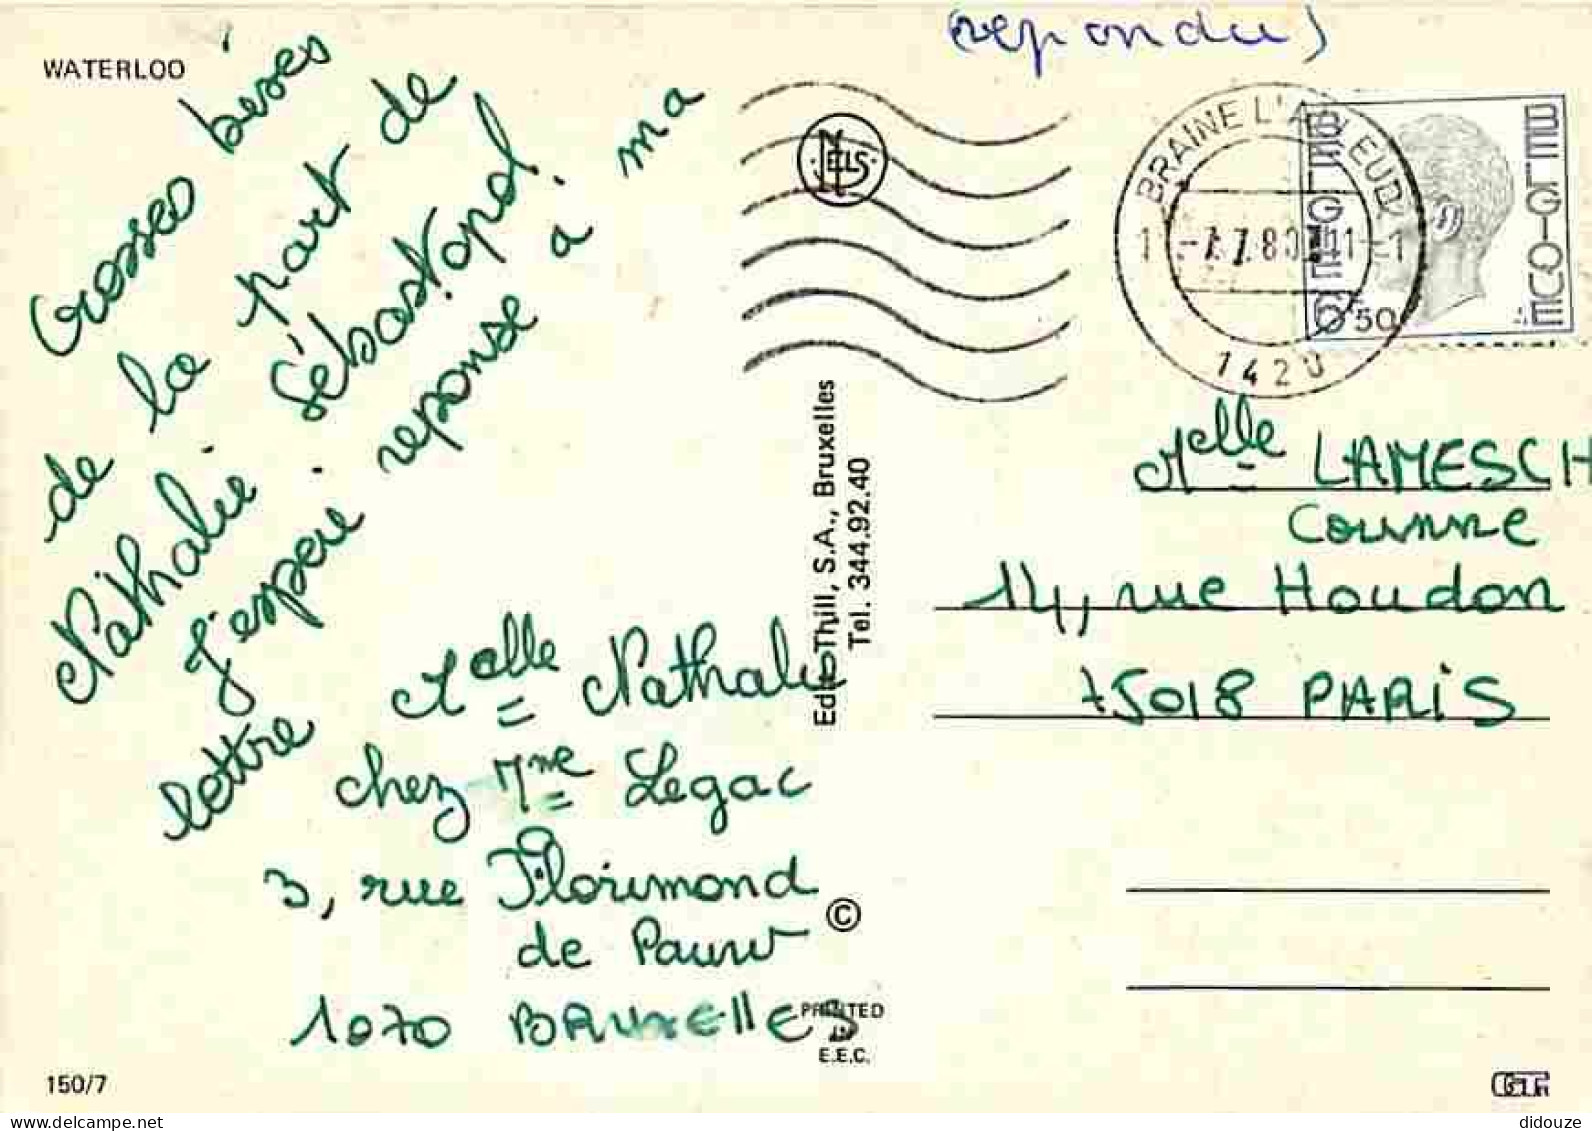 WATERLOO
(repondu)
Grosses bises
de la part de
Nathalie Sébastopol.
J'espère reponse à ma
lettre
Melle Nathalie
chez Mme Legac
3, rue Florimond
de Pauw
1070 BRUXEllES
150/7
NELS
Edit. Thill, S.A., Bruxelles
Tel. 344.92.40
©
PRINTED
IN
E.E.C.
BRAINE L'ALLEUD
1420
BELGIE
BELGIQUE
6,50
Melle LAMESCH
Corinne
14, rue Houdon
75018 PARIS
didouze
delcampe.net